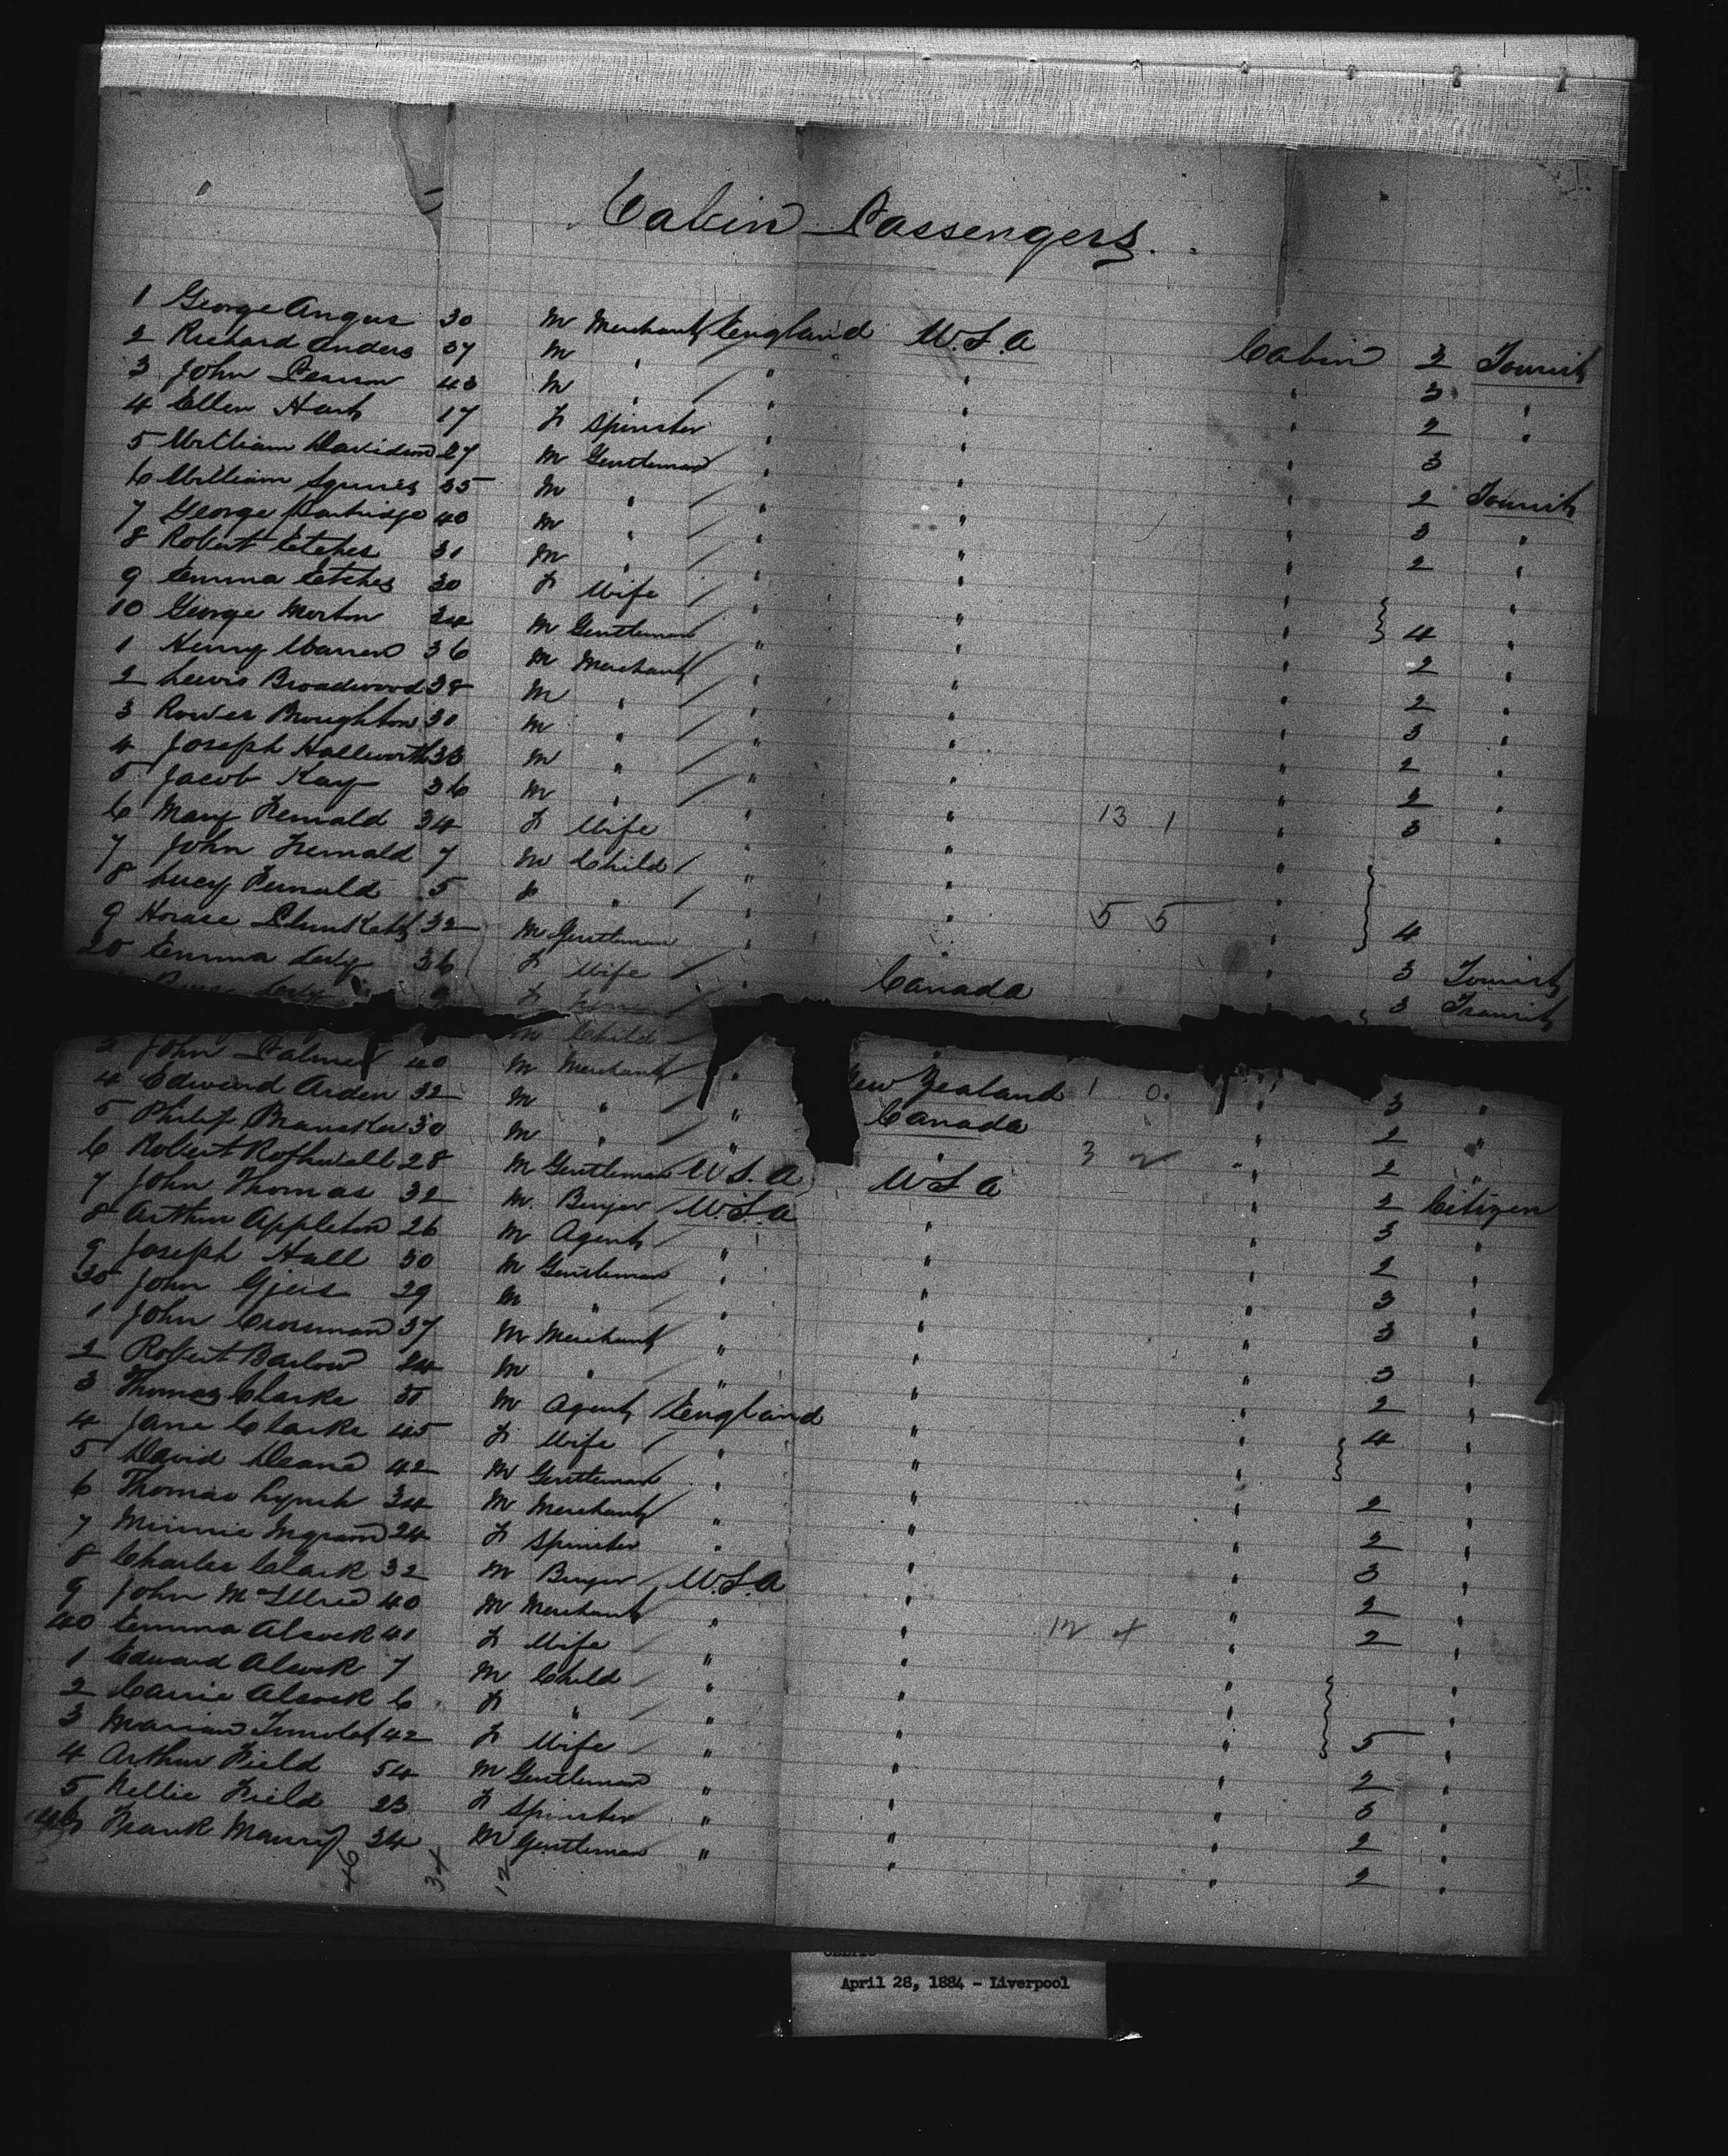 Cabin Passengers.
1 George Angus 30 M Merchant England U.S.A Cabin 2 Tourist
2 Richard Anders 37 M " " " " 3 "
3 John Pearson 43 M " " " " 2 "
4 Ellen Hart 17 F Spinster " " " 3
5 William Davidson 27 M Gentleman " " " 2 Tourist
6 William Squires 35 M " " " " 3 "
7 George Partridge 40 M " " " " 2 "
8 Robert Etches 31 M " " " "
9 Emma Etches 30 F Wife " " " 4 "
10 George Morton 24 M Gentleman " " " 2 "
1 Henry Warren 36 M Merchant " " " 2 "
2 Lewis Broadwood 38 M " " " " 3 "
3 Broughton 31 M " " " " 2 "
4 Joseph Hallworth 33 M " " " " 2 "
5 Jacob Kay 36 M " " " 13 1 " 3 "
6 Mary Fernald 34 F Wife " " "
7 John Fernald 7 M Child " " "
8 Lucy Fernald 5 F " " " 5 5 " 4
9 Horace Plunkett 32 M Gentleman " " " 3 Tourist
20 Emma 36 F Wife " Canada 3 Transit
M Child
3 John Palmer 40 M Merchant " New Zealand 1 0 " 3 "
4 Edward Arden 32 M " " Canada " 2 "
5 Philip 30 M " " " 3 2 " 2 "
6 Robert Rothwell 28 M Gentleman U.S.A U.S.A " 2 Citizen
7 John Thomas 32 M Buyer U.S.A " " 3 "
8 Arthur Appleton 26 M Agent " " " 2 "
9 Joseph Hall 30 M Gentleman " " " 3 "
30 John 29 M " " " " 3 "
1 John Crossman 37 M Merchant " " " 3 "
2 Robert Barlow 24 M " " " " 2 "
3 Thomas Clarke M Agent England " " 4 "
4 Jane Clarke 45 F Wife " " "
5 David Deane 42 M Gentleman " " " 2 "
6 Thomas Lynch 34 M Merchant " " " 2 "
7 Minnie Ingram 24 F Spinster " " " 3 "
8 Charles Clark 32 M Buyer U.S.A " " 2 "
9 John 40 M Merchant " " 12 4 " 2 "
40 Emma Alcock 41 F Wife " " "
1 Edward Alcock 7 M Child " " "
2 Carrie Alcock 6 F " " " " 5 "
3 Marian 42 F Wife " " " 2 "
4 Arthur Field 54 M Gentleman " " " 3 "
5 Nellie Field 23 F Spinster " " " 2 "
46 Frank 34 M Gentleman " " " 2 "
46 34 12
April 28, 1884 - Liverpool